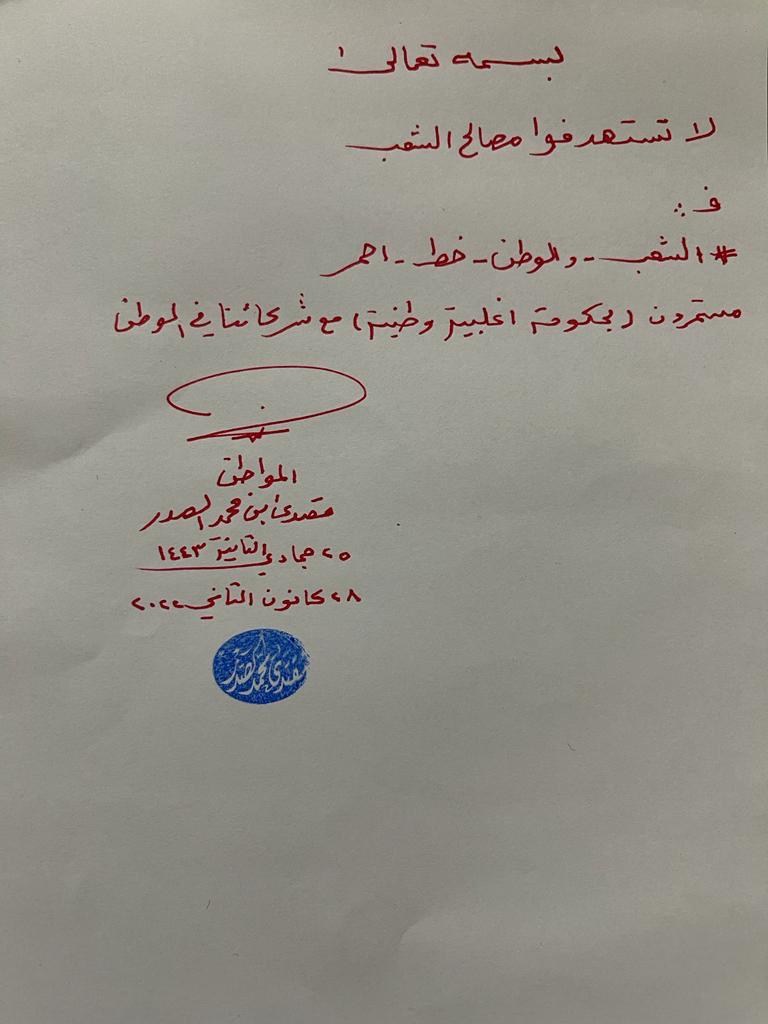 بسمه تعالى
لا تستهدفوا مصالح الشعب
فـ :
# الشعب - والوطن - خط - احمر
مستمرون (بحكومة اغلبية وطنية) مع شركائنا في الوطن
المواطن
مقتدى ابن محمد الصدر
٢٥ جمادي الثانية ١٤٤٣
٢٨ كانون الثاني ٢٠٢٢
مقتدى محمد الصدر